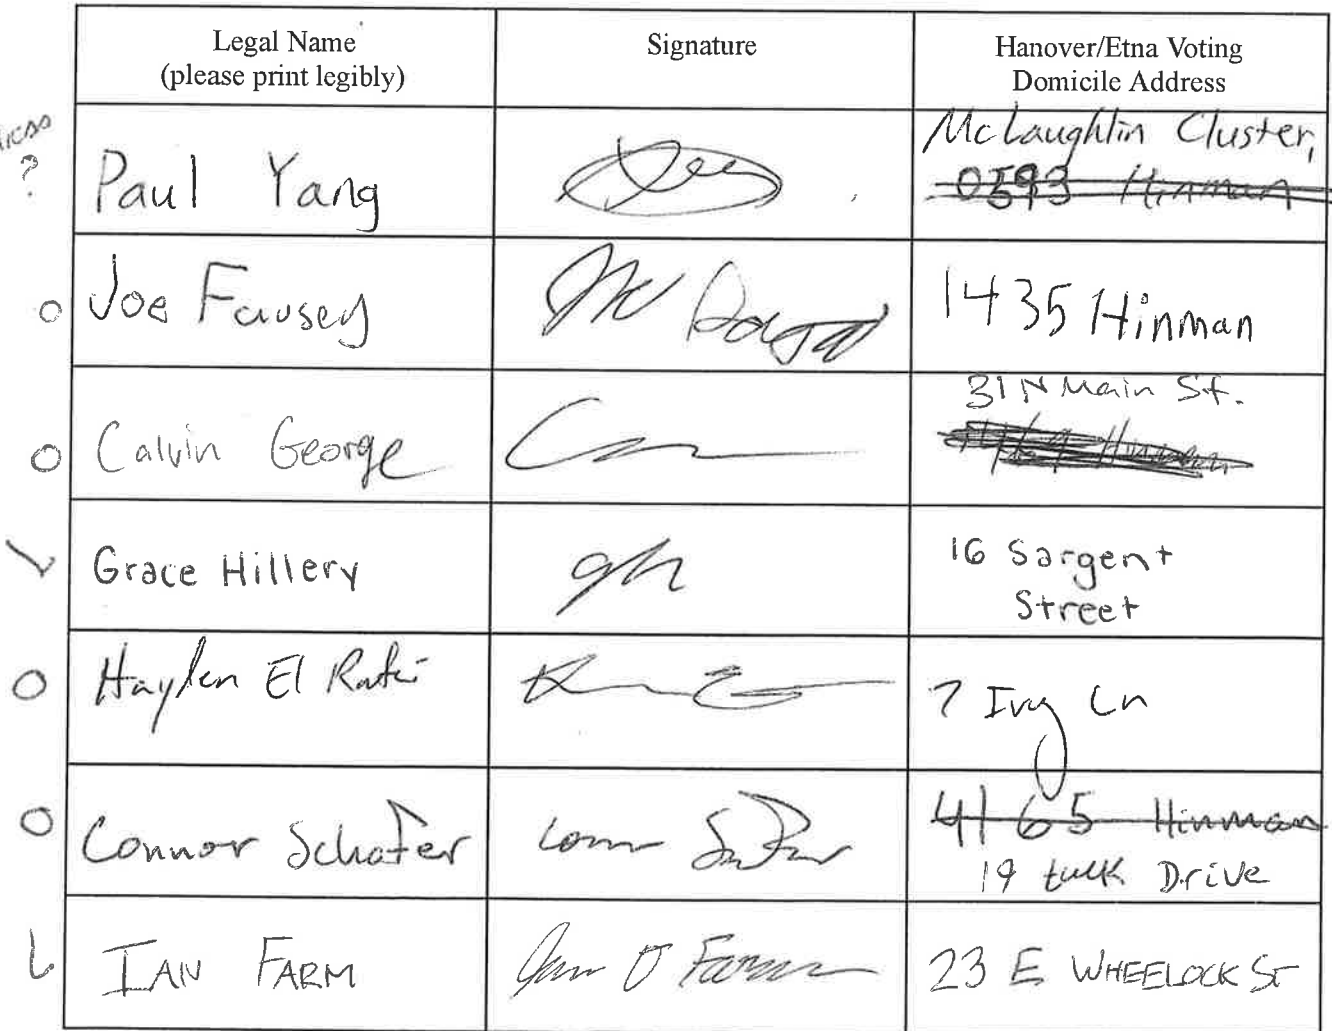 Legal Name
(please print legibly)
Signature
Hanover/Etna Voting
Domicile Address
?
Paul Yang
McLaughlin Cluster,
0593 Hinman
O Joe Fausey
1435 Hinman
O Calvin George
31 N Main St.
Hinman
✓ Grace Hillery
gh
16 Sargent
Street
O Hayden El Rafei
7 Ivy Ln
O Connor Schafer
4165 Hinman
19 tuck Drive
IAN FARM
Ian O Farm
23 E WHEELOCK ST